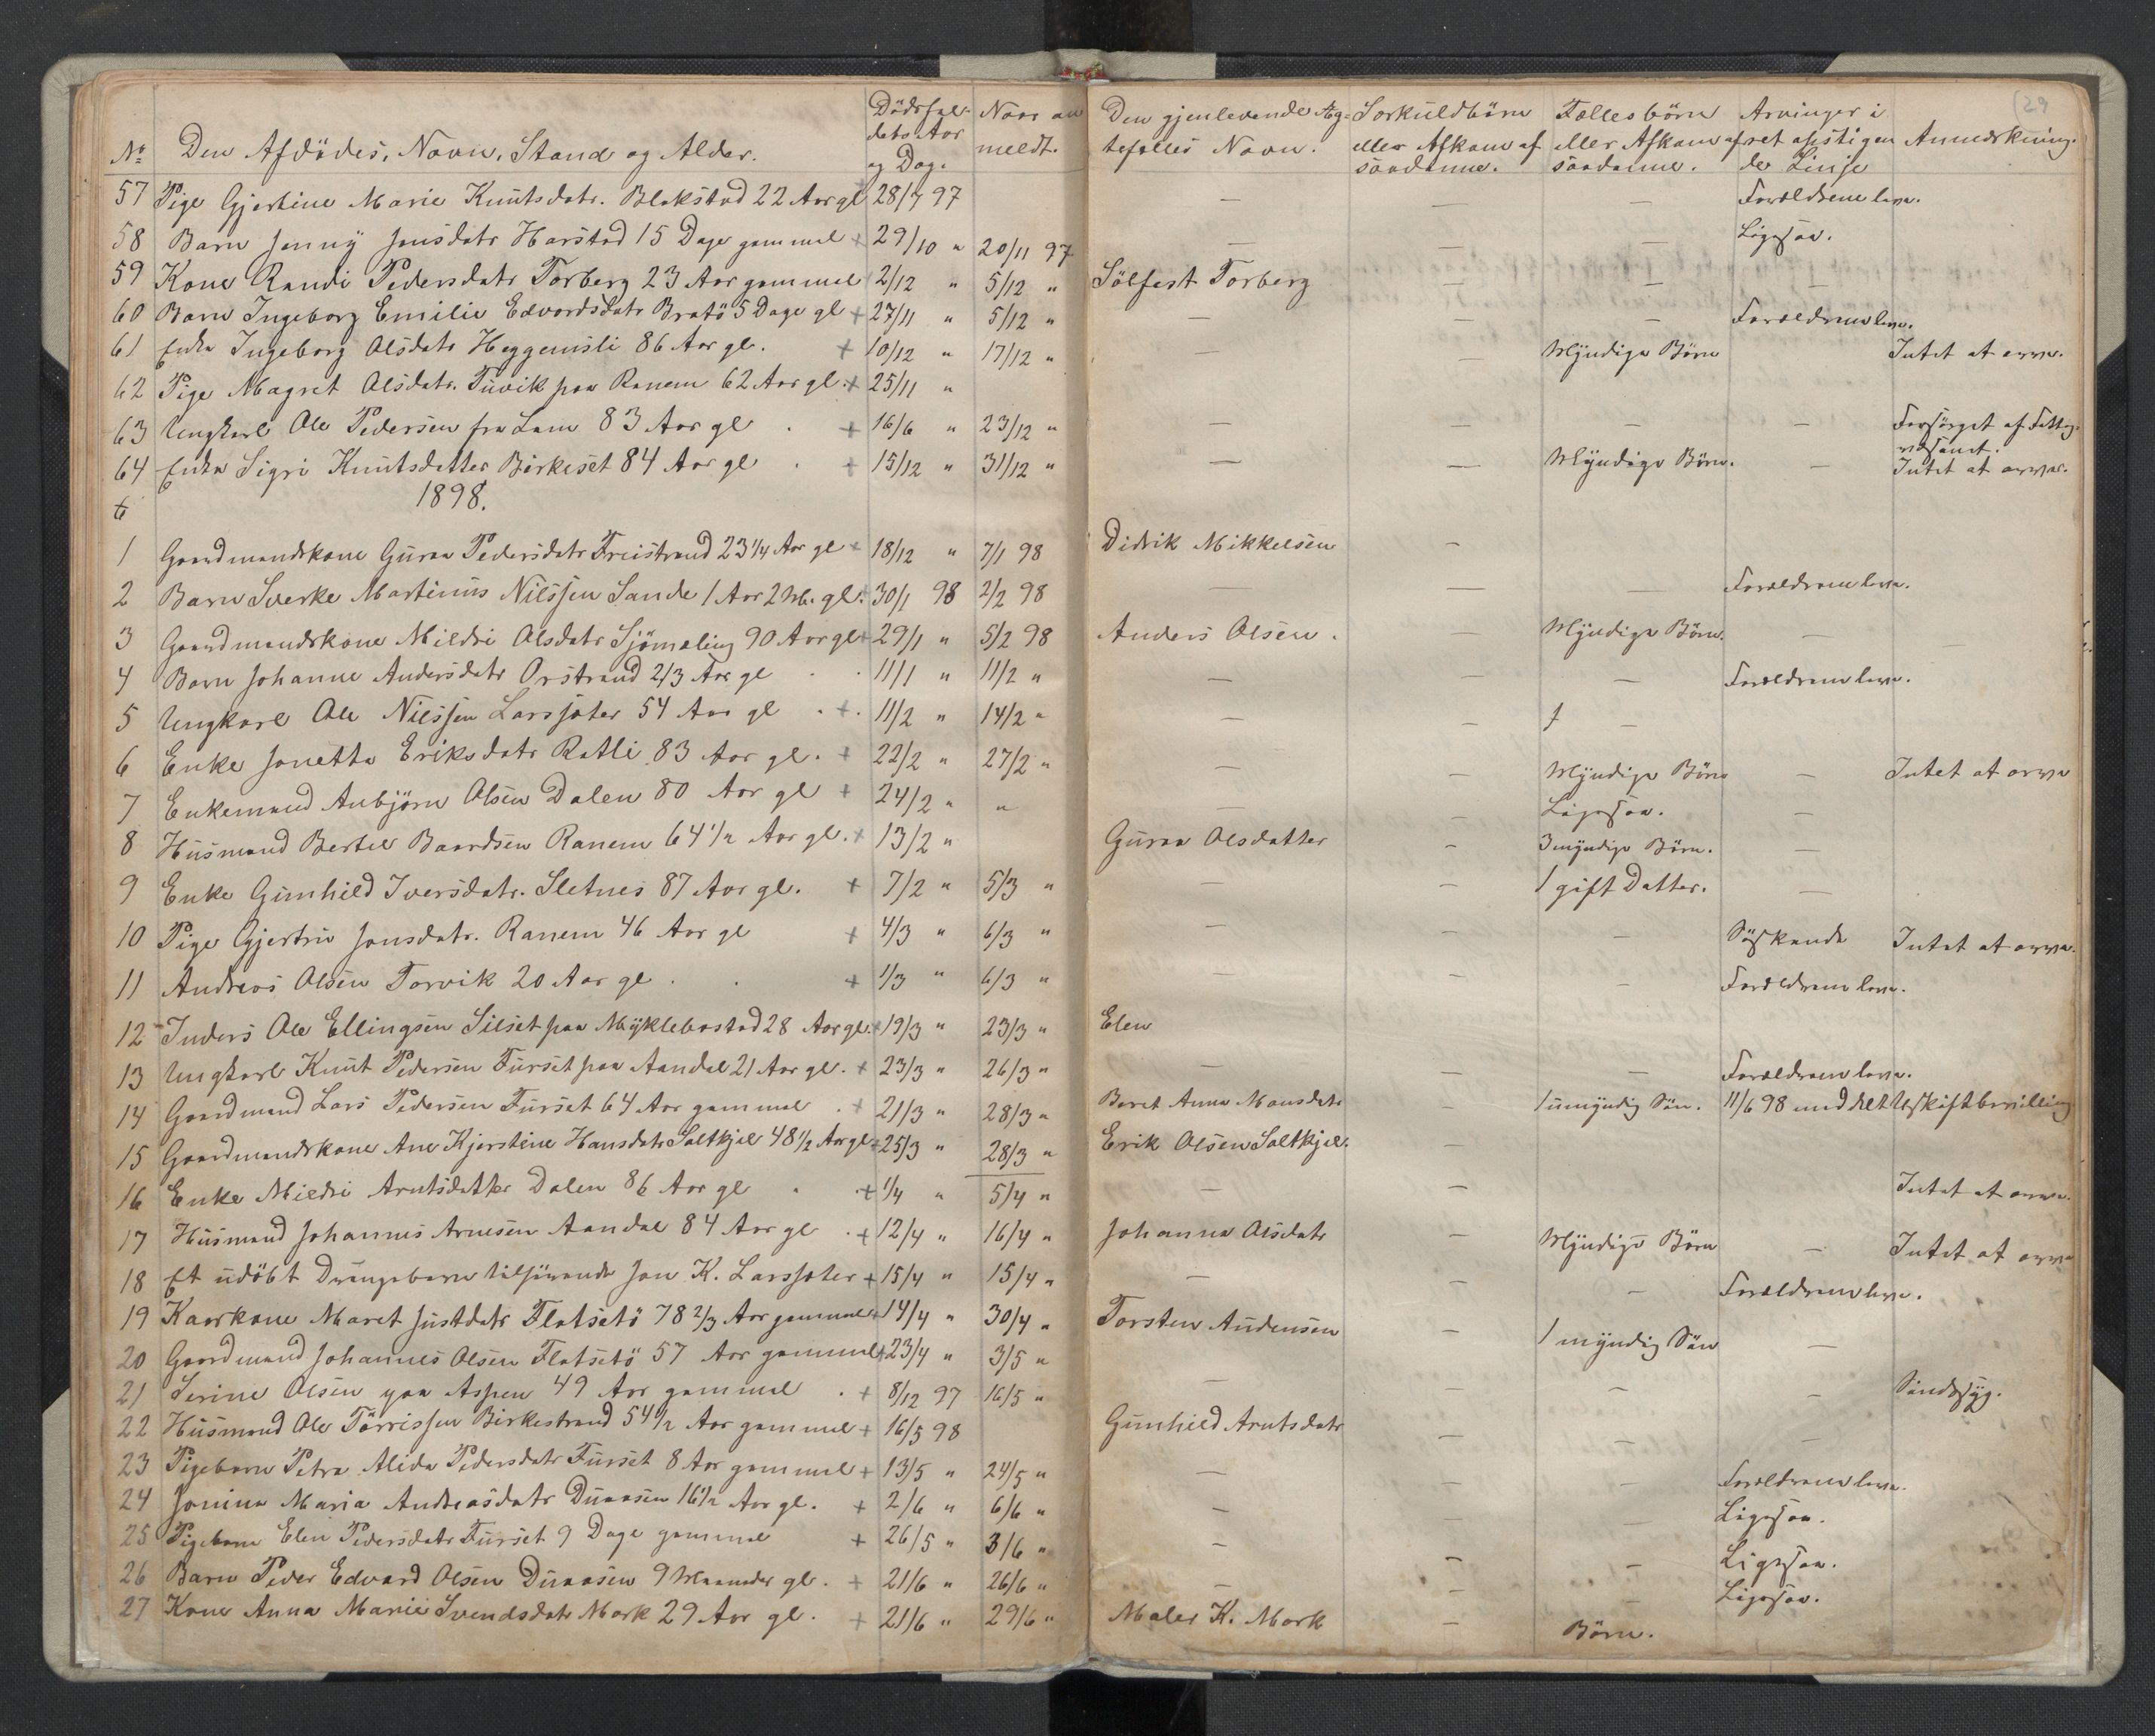 29
No Den Afdødes, Navn, Stand og Alder. Dødsfal- Naar an Den gjenlevende Æg- Særkuldbörn Fællesbörn Arvinger i
dets Aar meldt. tefælles Navn. eller Afkom af eller Afkom af ret opstigen Anmærkning.
og Dag. saadanne. saadanne. de Linje
57 Pige Gjertine Marie Knutsdatr. Blakstad 22 Aar gl 28/7 97 — — — Forældrene leve.
58 Barn Jenny Jensdatr Harstad 15 Dage gammel + 29/10 " 20/11 97 — — — Ligesaa.
59 Kone Randi Pedersdatr Torberg 23 Aar gammel 2/12 " 5/12 " Sölfest Torberg — — —
60 Barn Ingeborg Emilie Edvardsdatr Bratö 5 Dage gl + 27/11 " 5/12 " — — — Forældrene leve.
61 Enke Ingeborg Olsdatr Heggemsli 86 Aar gl. + 10/12 " 17/12 " — — Myndige Börn Intet at arve.
62 Pige Magret Olsdatr. Tuvik paa Ranem 62 Aar gl. + 25/11 "
63 Ungkarl Ole Pedersen fra Lem 83 Aar gl . + 16/6 " 23/12 " — — — — Forsörget af Fattig-
væsenet.
64 Enke Sigri Knutsdatter Birkeset 84 Aar gl . + 15/12 " 31/12 " — — Myndige Börn. — Intet at arve.
1898.
1 Gaardmandskone Guraa Pedersdatr Freistrand 23 1/4 Aar gl + 18/12 " 7/1 98 Didrik Mikkelsen —
2 Barn Sverke Martinus Nilssen Sande 1 Aar 2 M. gl. + 30/1 98 2/2 98 — — — Forældrene leve.
3 Gaardmandskone Mildri Olsdatr Sjömeling 90 Aar gl + 29/1 " 5/2 98 Anders Olsen. — Myndige Börn. — —
4 Barn Johanne Andersdatr Orstrand 2/3 Aar gl . . 11/1 " 11/2 " — — — Forældrene leve.
5 Ungkarl Ole Nilssen Larssæter 54 Aar gl . + . 11/2 " 14/2 " — — —
6 Enke Jonetta Eriksdatr Ratli 83 Aar gl. + 22/2 " 27/2 " — — Myndige Börn — Intet at arve
7 Enkemand Anbjörn Olsen Dalen 80 Aar gl + 24/2 " " — — Ligesaa. —
8 Husmand Bertel Baardsen Ranem 64 1/2 Aar gl. + 13/2 " Guraa Olsdatter — 3 myndige Börn. —
9 Enke Gunhild Iversdatr. Sletnes 87 Aar gl. + 7/2 " 5/3 " — — 1 gift Datter. —
10 Pige Gjertru Jonsdatr. Ranem 46 Aar gl + 4/3 " 6/3 " — — — Söskende Intet at arve.
11 Andreas Olsen Torvik 20 Aar gl . . + 1/3 " 6/3 " — — — Forældrene leve.
12 Inders Ole Ellingsen Silset paa Myklebostad 28 Aar gl. + 19/3 " 23/3 " Elen
13 Ungkarl Knut Pedersen Furset paa Aandal 21 Aar gl. + 23/3 " 26/3 " — — — Forældrene leve.
14 Gaardmand Lars Pedersen Furset 64 Aar gammel . + 21/3 " 28/3 " Beret Anna Monsdatr — 1 umyndig Sön. 11/6 98 meddelt Uskiftbevilling
15 Gaardmandskone Ane Kjerstine Hansdatr Saltkjel 48 1/2 Aar gl. + 25/3 " 28/3 " Erik Olsen Saltkjel. —
16 Enke Mildri Arntsdatter Dalen 86 Aar gl . . + 1/4 " 5/4 " — — Intet at arve.
17 Husmand Johannes Arnesen Aandal 84 Aar gl . + 12/4 " 16/4 " Johanna Olsdatr — Myndige Börn — Intet at arve
18 Et udöbt Drengebarn tilhörende Jon K. Larssæter + 15/4 " 15/4 " — — — Forældrene leve.
19 Kaarkone Maret Justdatr Flatsetö 78 2/3 Aar gammel + 14/4 " 30/4 " Torsten Audensen — 1 myndig Sön —
20 Gaardmand Johannes Olsen Flatsetö 57 Aar gammel + 23/4 " 3/5 "
21 Serine Olsen paa Aspen 49 Aar gammel . + 8/12 97 16/5 " — — — — Sindssyg.
22 Husmand Ole Törrissen Birkestrand 54 1/2 Aar gammel + 16/5 98 Gunhild Arntsdatr — — —
23 Pigebarn Petra Alida Pedersdatr Furset 8 Aar gammel + 13/5 " 24/5 " — — — Forældrene leve.
24 Jonina Maria Andreasdatr Duaasen 16 1/2 Aar gl. + 2/6 " 6/6 " — — — Ligesaa.
25 Pigebarn Elen Pedersdatr Furset 9 Dage gammel + 26/5 " 3/6 " — — — Ligesaa.
26 Barn Peder Edvard Olsen Duaasen 9 Maaneder gl. + 21/6 " 26/6 " — — — Ligesaa.
27 Kone Anna Marie Svendsdatr Mork 29 Aar gl. + 21/6 " 29/6 " Maler K. Mork — Börn.